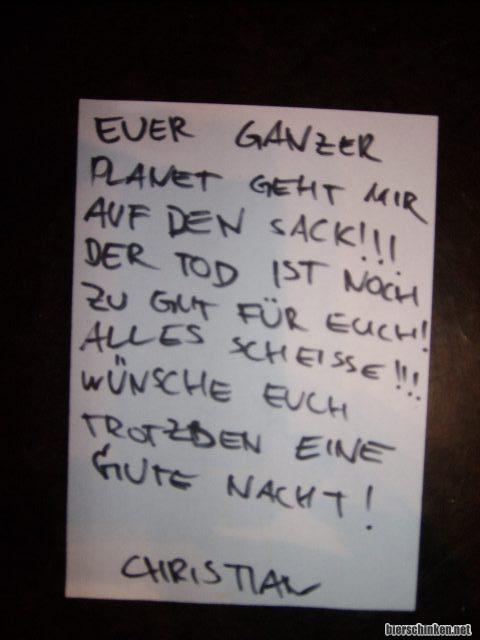 EUER GANZER
PLANET GEHT MIR
AUF DEN SACK!!!
DER TOD IST NOCH
ZU GUT FÜR EUCH!
ALLES SCHEISSE!!!
WÜNSCHE EUCH
TROTZDEN EINE
GUTE NACHT!
CHRISTIAN
bierschinken.net